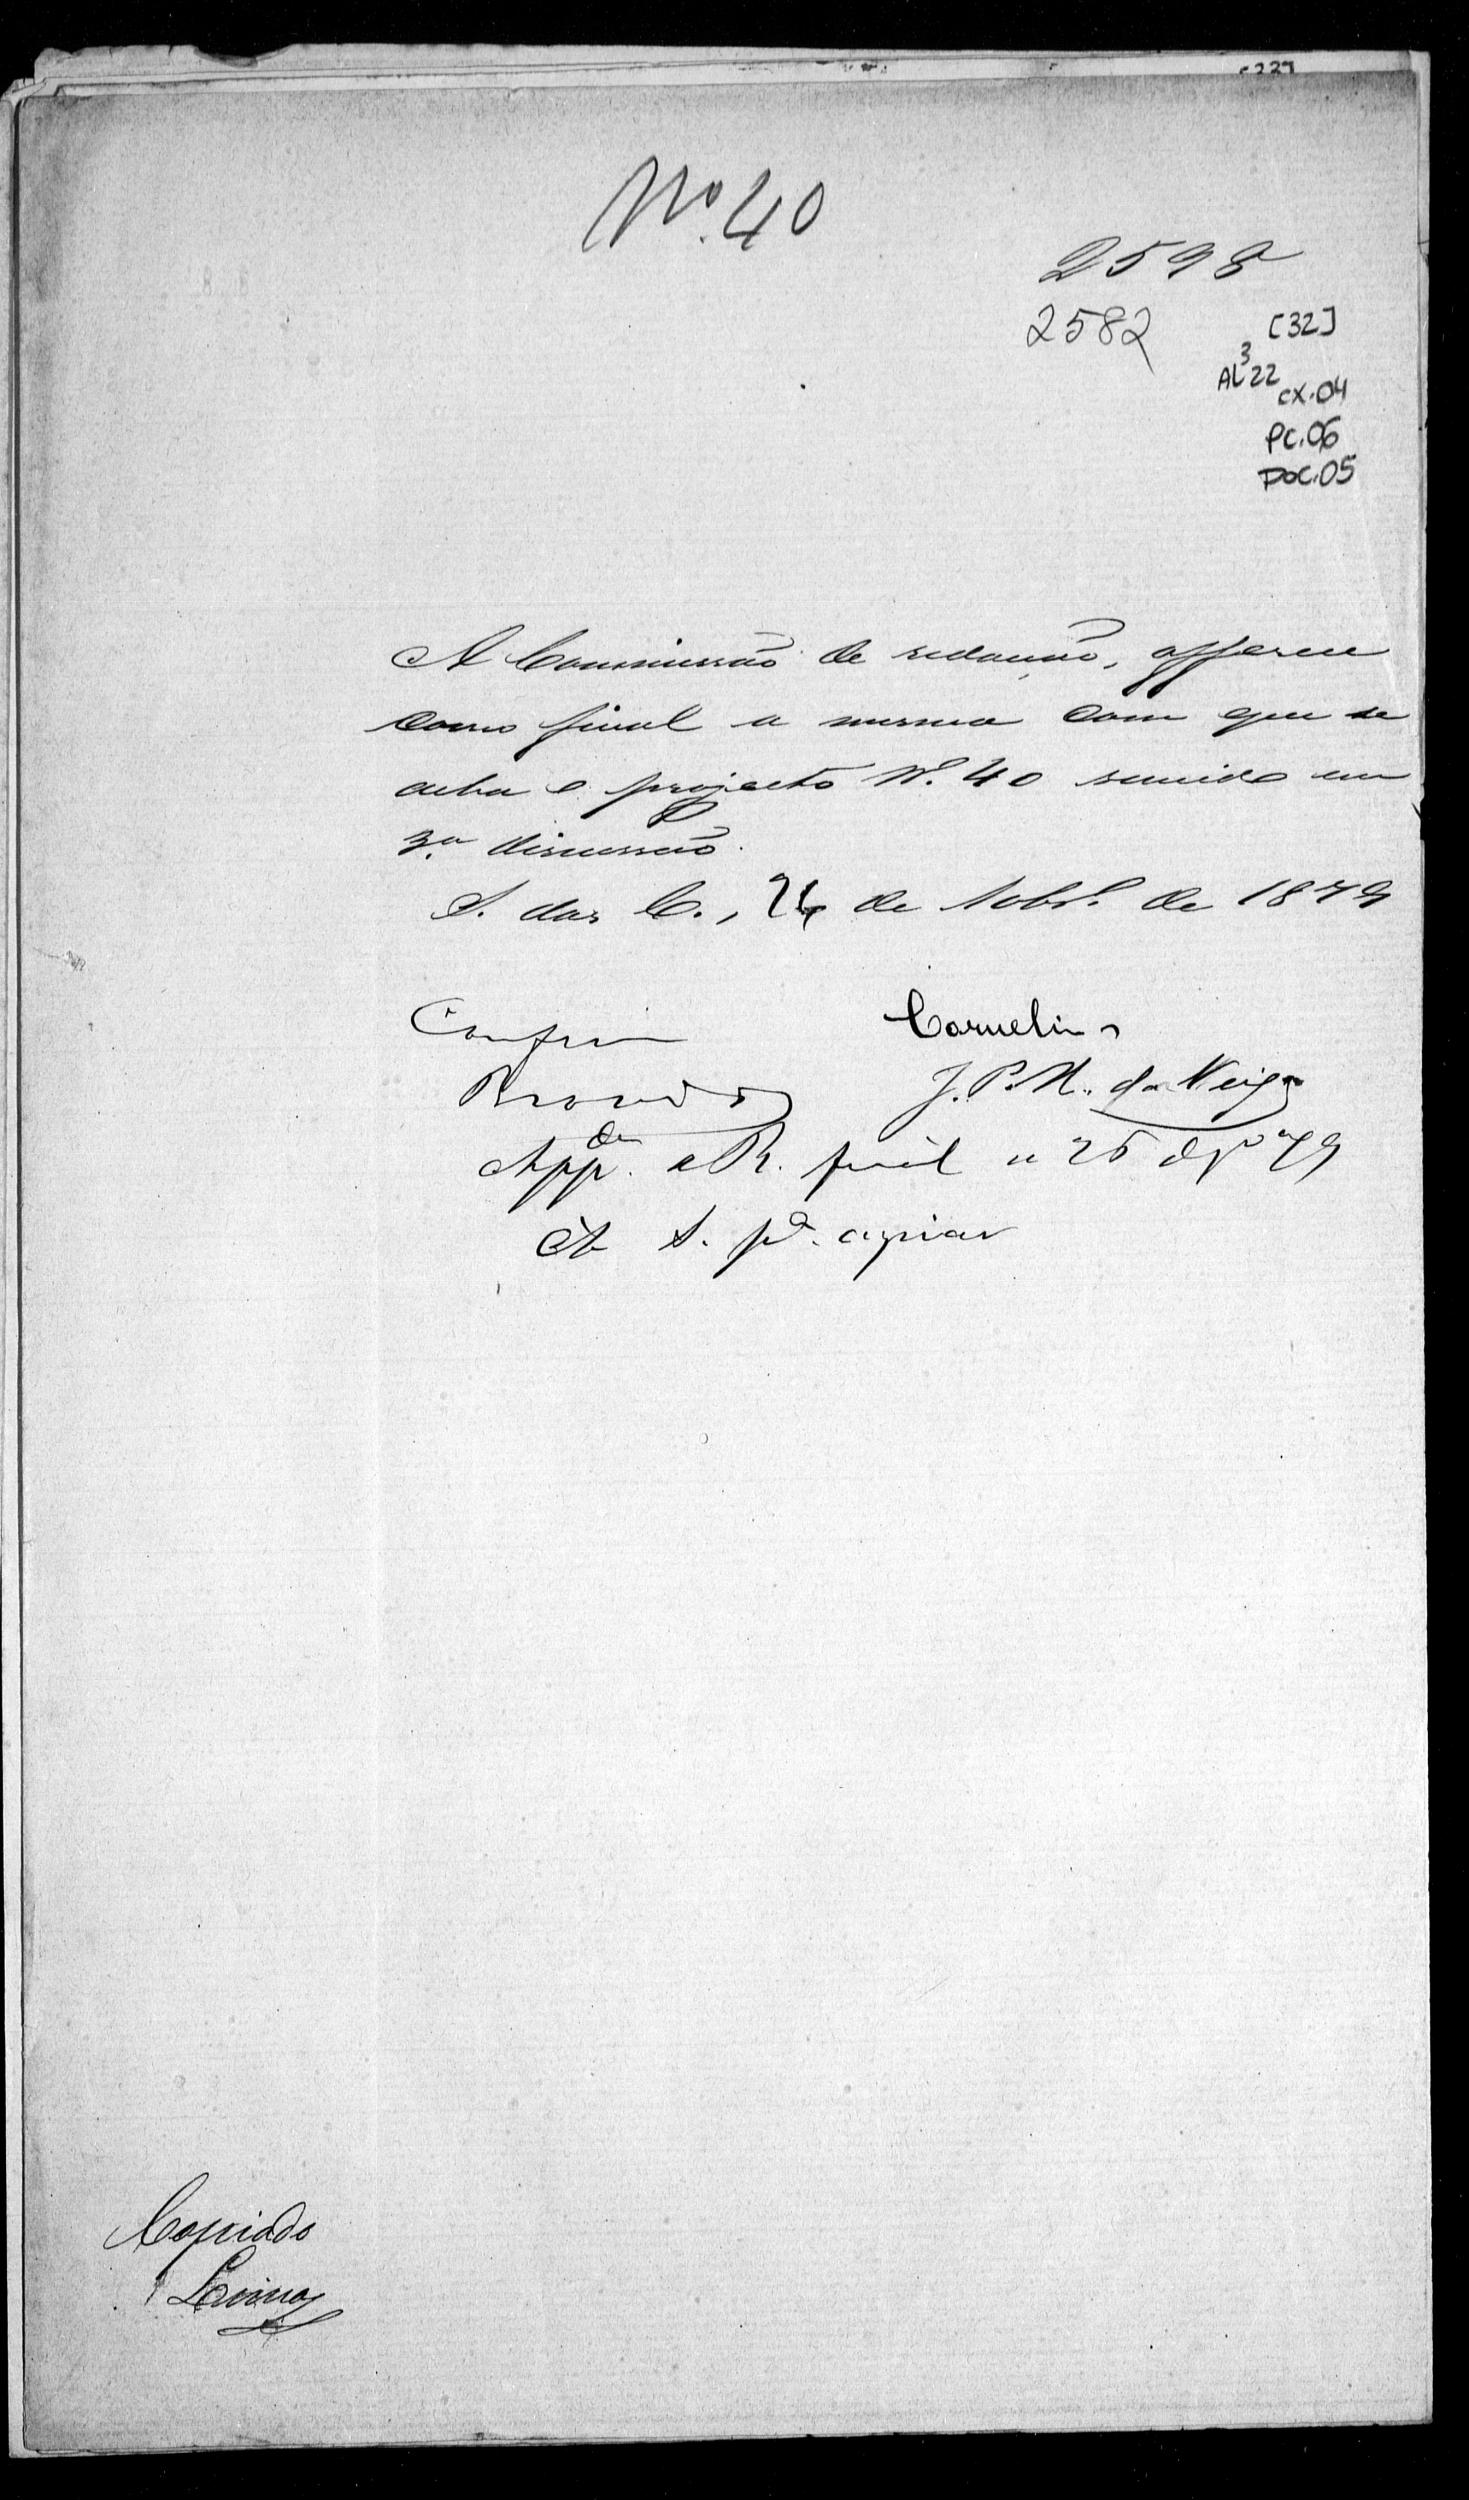 Nº 40
2598
2582
[32]
AL³22
cx.04
PC.06
DOC.05
A Commissão de redacção, offerece
como final a mesma com que se
acha o projecto Nº. 40 remido em
3.ª discussão.
S. das C., 26 de Nobr.º de 1879
Cornelio
Brandão J. P. X. da Veiga
App.da a R. final a 26 9br.º 79
A S. p.a copiar
Copiado